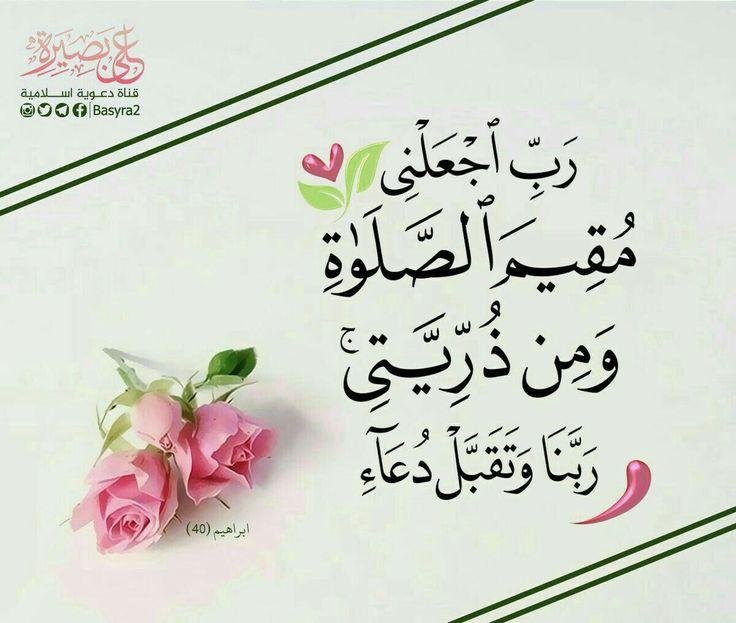 على بصيرة
قناة دعوية اسلامية
Basyra2
رَبِّ ٱجْعَلْنِى
مُقِيمَ ٱلصَّلَوٰةِ
وَمِن ذُرِّيَّتِى ۚ
رَبَّنَا وَتَقَبَّلْ دُعَآءِ
ابراهيم (40)